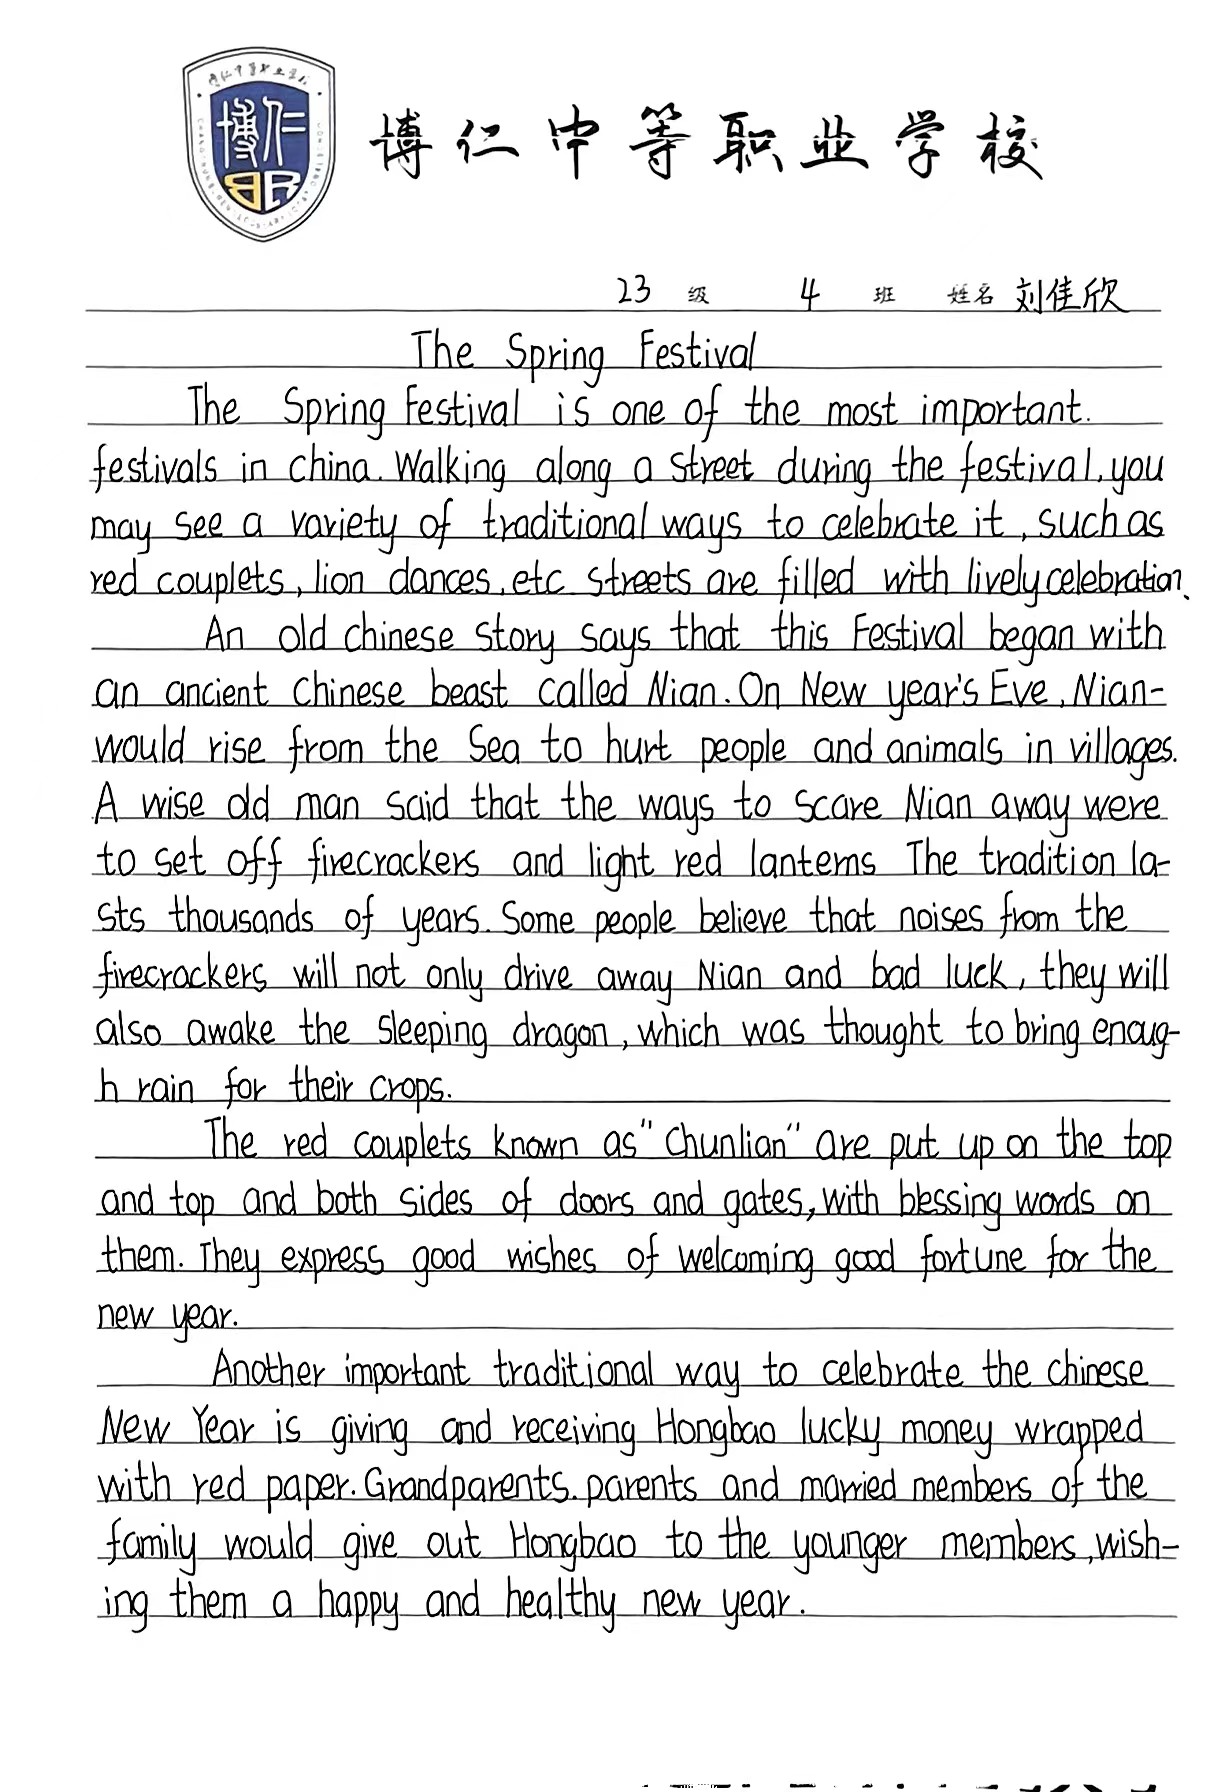 博仁中等职业学校
博仁
BR
博仁中等职业学校
23 级 4 班 姓名 刘佳欣
The Spring Festival
The Spring Festival is one of the most important.
festivals in china. Walking along a street during the festival, you
may see a variety of traditional ways to celebrate it, such as
red couplets, lion dances, etc streets are filled with lively celebration.
An old chinese story says that this Festival began with
an ancient chinese beast called Nian. On New year's Eve, Nian-
would rise from the sea to hurt people and animals in villages.
A wise old man said that the ways to scare Nian away were
to set off firecrackers and light red lanterns The tradition la-
sts thousands of years. Some people believe that noises from the
firecrackers will not only drive away Nian and bad luck, they will
also awake the sleeping dragon, which was thought to bring enoug-
h rain for their crops.
The red couplets known as "Chunlian" are put up on the top
and top and both sides of doors and gates, with blessing words on
them. They express good wishes of welcoming good fortune for the
new year.
Another important traditional way to celebrate the chinese
New Year is giving and receiving Hongbao lucky money wrapped
with red paper. Grandparents. parents and married members of the
family would give out Hongbao to the younger members, wish-
ing them a happy and healthy new year.